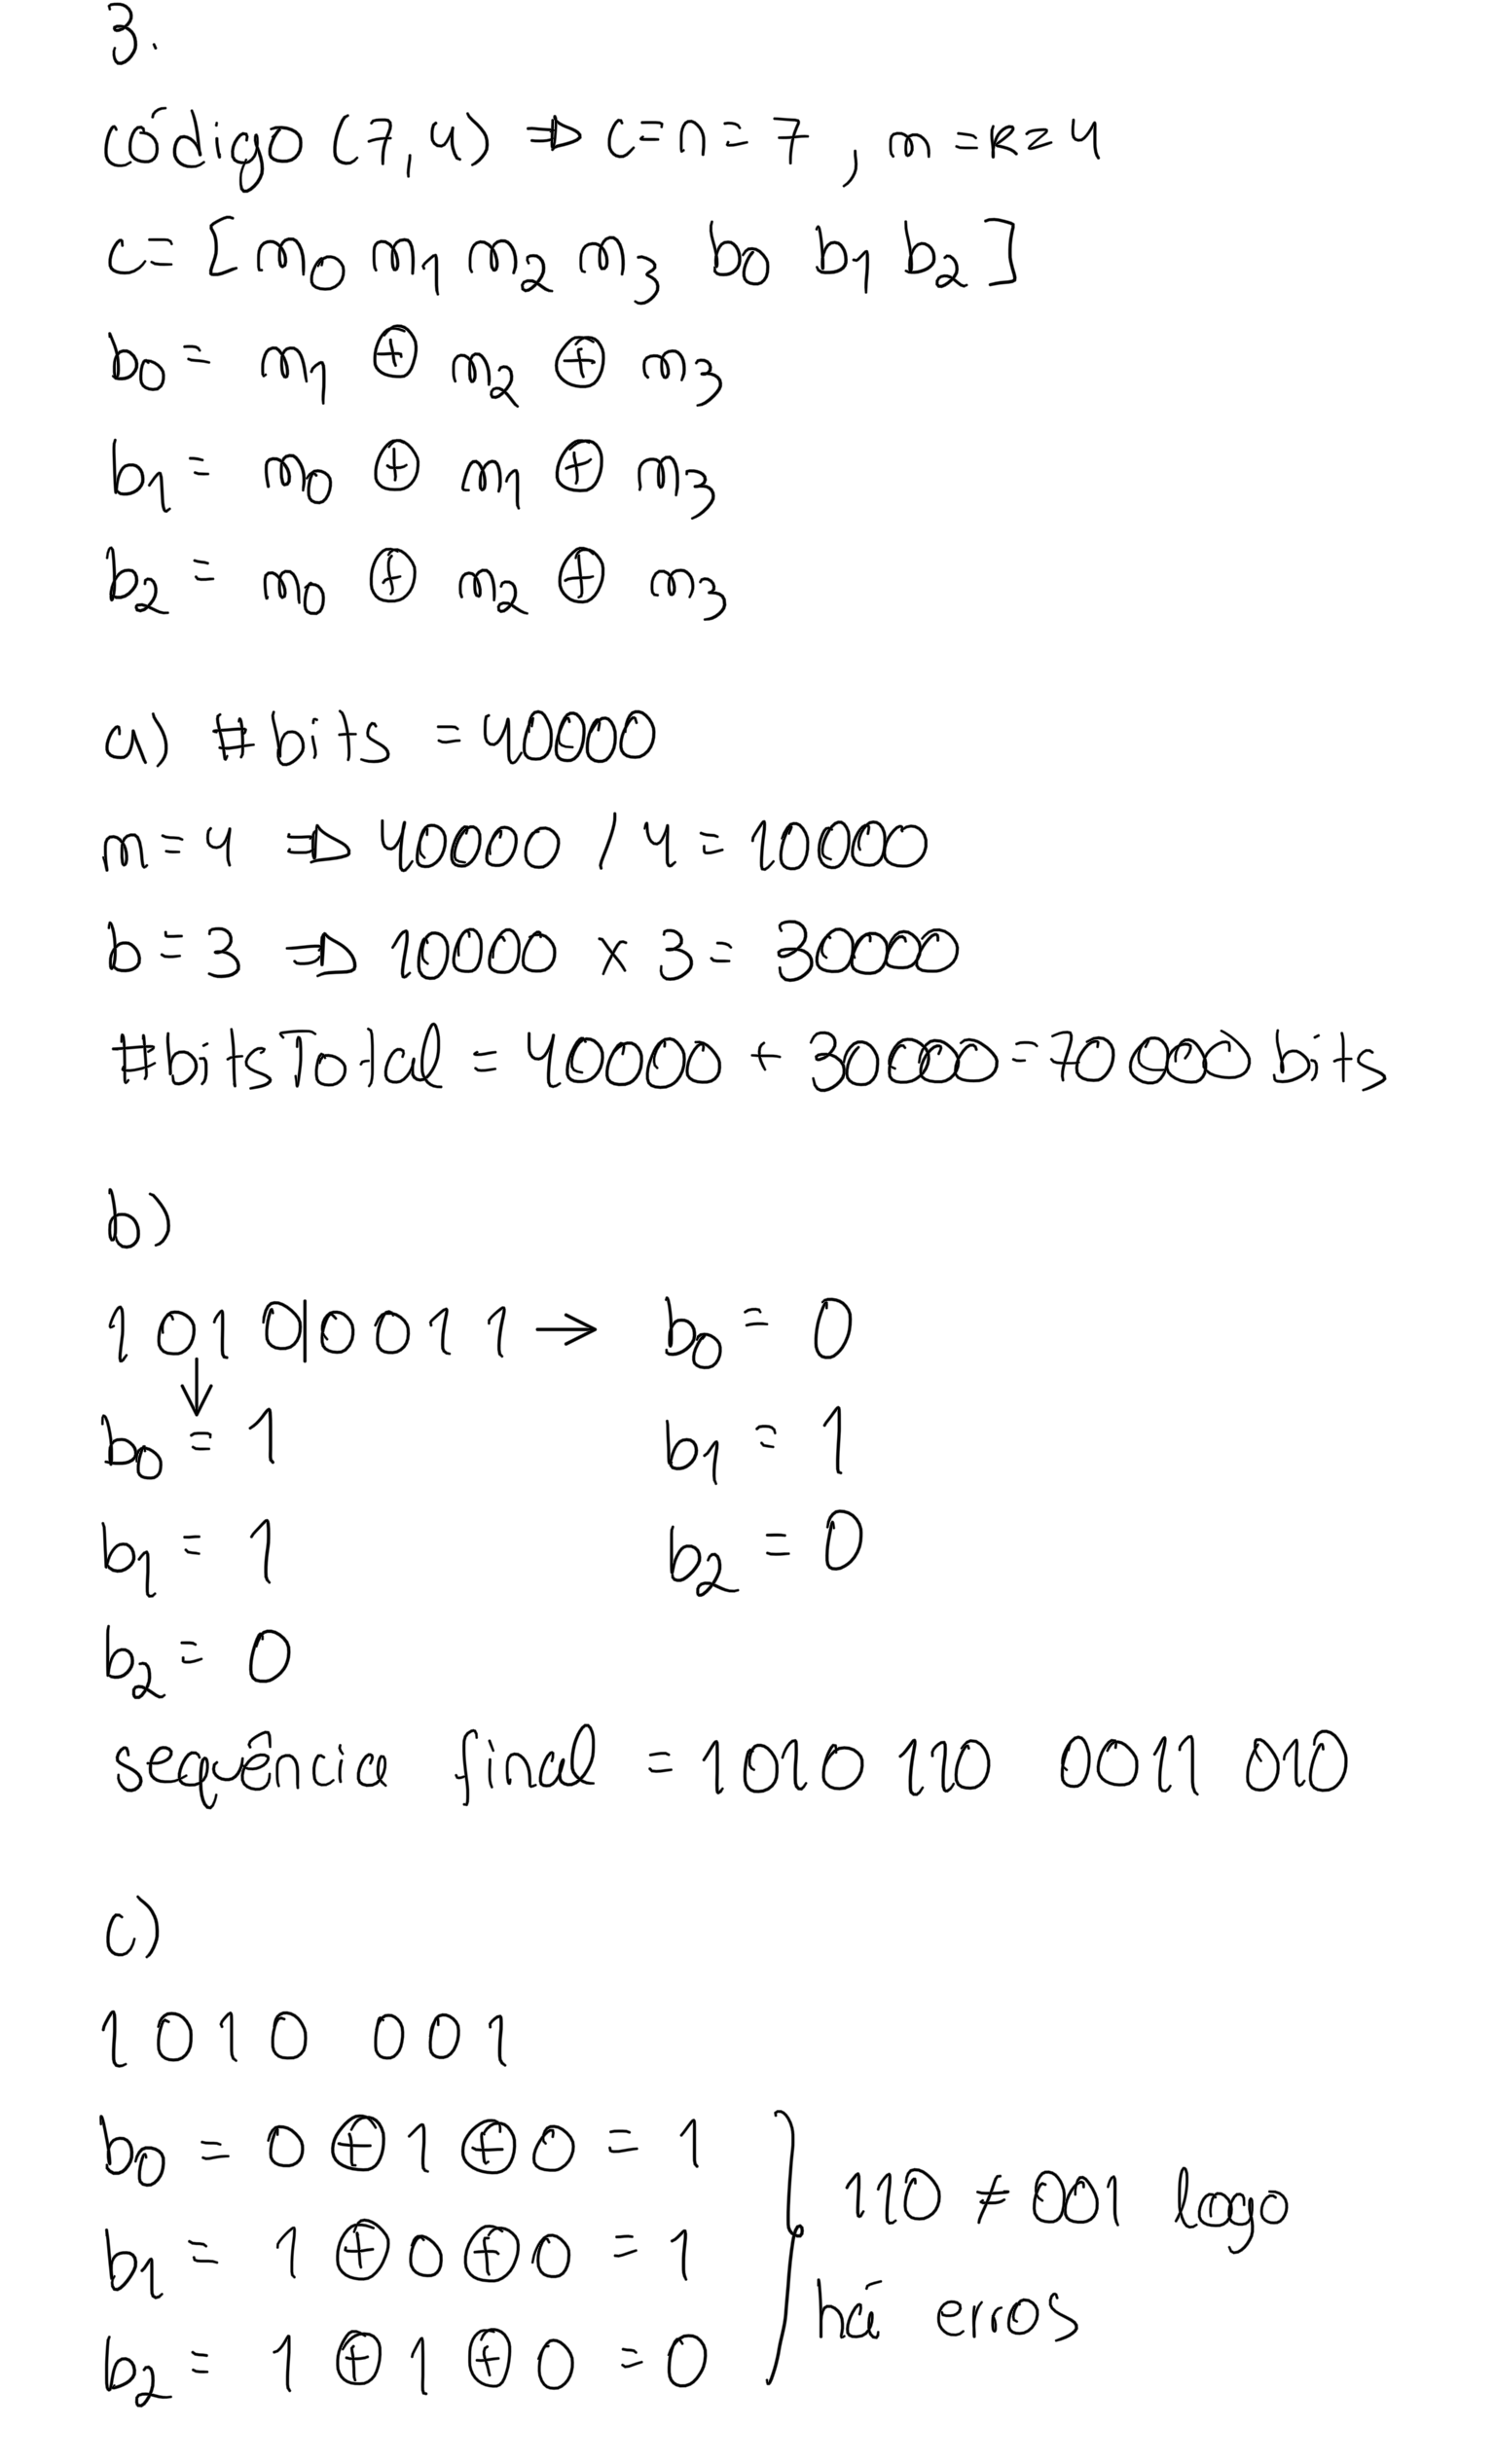 3.
código (7,4) ⇒ c=n=7, m=k=4
c= [ m0 m1 m2 m3 b0 b1 b2 ]
b0 = m1 ⊕ m2 ⊕ m3
b1 = m0 ⊕ m1 ⊕ m3
b2 = m0 ⊕ m2 ⊕ m3
a) #bits = 40000
m=4 ⇒ 40000 / 4 = 10000
b=3 ⇒ 10000 × 3 = 30000
#bitsTotal = 40000 + 30000 = 70000 bits
b)
1010|0011 → b0 = 0
↓
b0 = 1 b1 = 1
b1 = 1 b2 = 0
b2 = 0
sequência final = 1010 110 0011 010
c)
1010 001
b0 = 0 ⊕ 1 ⊕ 0 = 1
b1 = 1 ⊕ 0 ⊕ 0 = 1
b2 = 1 ⊕ 1 ⊕ 0 = 0
110 ≠ 001 logo
há erros